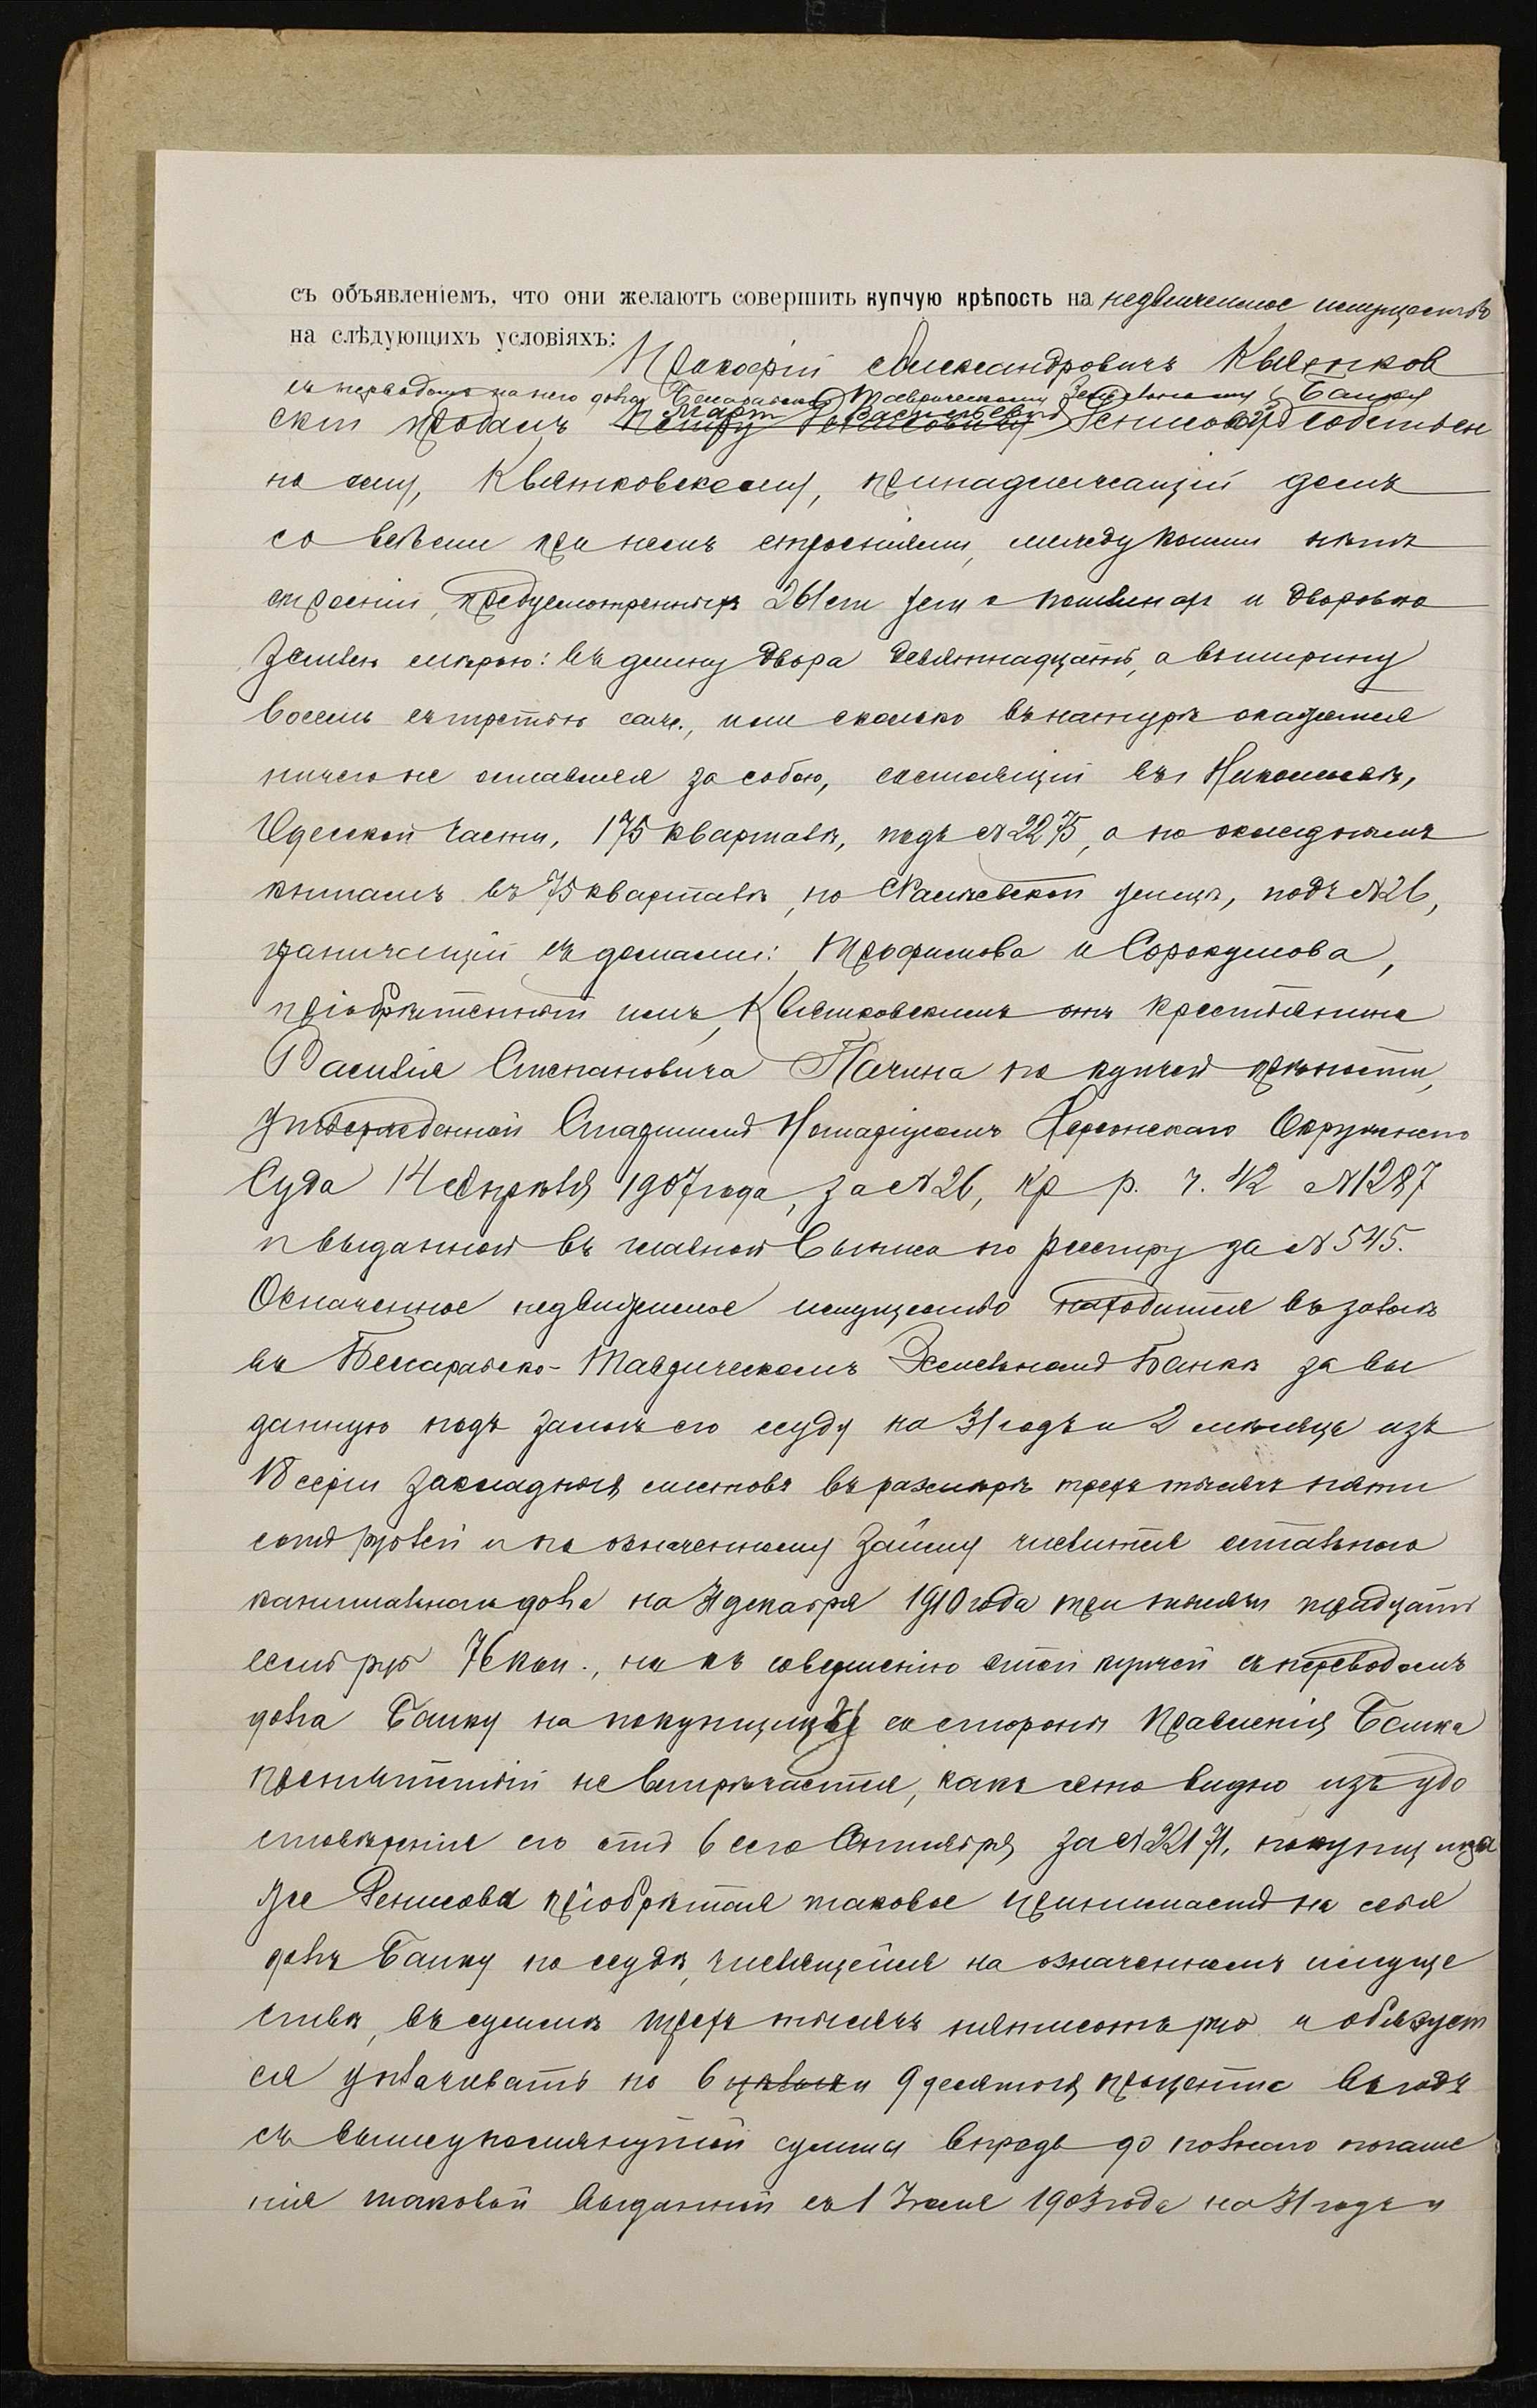 съ объявленіемъ, что они желаютъ совершить купчую крѣпость на недвижимое имущество
на слѣдующихъ условіяхъ:
Прокофій Александровичъ Квятков
съ переводомъ на него долга Бессарабско Таврическому Земельному Банку
Васильевнѣ
скій продалъ Петру Денисовичу Денисовой собствен
но ему, Квятковскому, принадлежащій домъ
со всѣми при немъ строеніями, между коими нѣтъ
строеній, предусмотренныхъ 261 ст и дворовою
землею мѣрою: въ длину двора девятнадцать, а въ ширину
восемь съ третью саж., или сколько въ натурѣ окажется
ничего не оставляя за собою, состоящій въ г Николаевѣ,
Одесской части, 175 кварталѣ, подъ № 2275, а по окладнымъ
книгамъ въ 75 кварталѣ, по улицѣ, подъ № 26,
граничащій съ домами: Трофимова и Сорокумова,
пріобрѣтенный имъ, Квятковскимъ отъ крестьянина
Василія Степановича Пачина по купчей крѣпости,
утвержденной Старшимъ Нотаріусомъ Херсонскаго Окружного
Суда 14 Апрѣля 1907 года, за № 26, кр р. ч. 42 № 1287
и выданной въ главной выписи по реестру за № 545.
Означенное недвижимое имущество находится въ залогѣ
въ Бессарабско-Таврическомъ Земельномъ Банкѣ за вы
данную подъ залогъ его ссуду на 31 годъ и 2 мѣсяца изъ
18 серіи закладныхъ листовъ въ размѣрѣ трехъ тысячъ пяти
сотъ рублей и по означенному займу числится остального
капитальнаго долга на 31 декабря 1910 года три тысячи тридцать
семь руб 76 коп., но къ совершенію этой купчей съ переводомъ
долга Банку на покупщицу со стороны Правленія Банка
препятствій не встрѣчается, какъ это видно изъ удо
стовѣренія его отъ 6 сего Сентября за № 22171, покупщица
же Денисова пріобрѣтая таковое принимаетъ на себя
долгъ Банку по ссудѣ, числящейся на означенномъ имуще
ствѣ, въ суммѣ трехъ тысячъ пятисотъ руб и обязует
ся уплачивать по 6 цѣлыхъ и 9 десятыхъ процента въ годъ
съ вышеупомянутой суммы впредь до полнаго погаше
нія таковой выданной съ 1 Іюля 1903 года на 31 годъ и